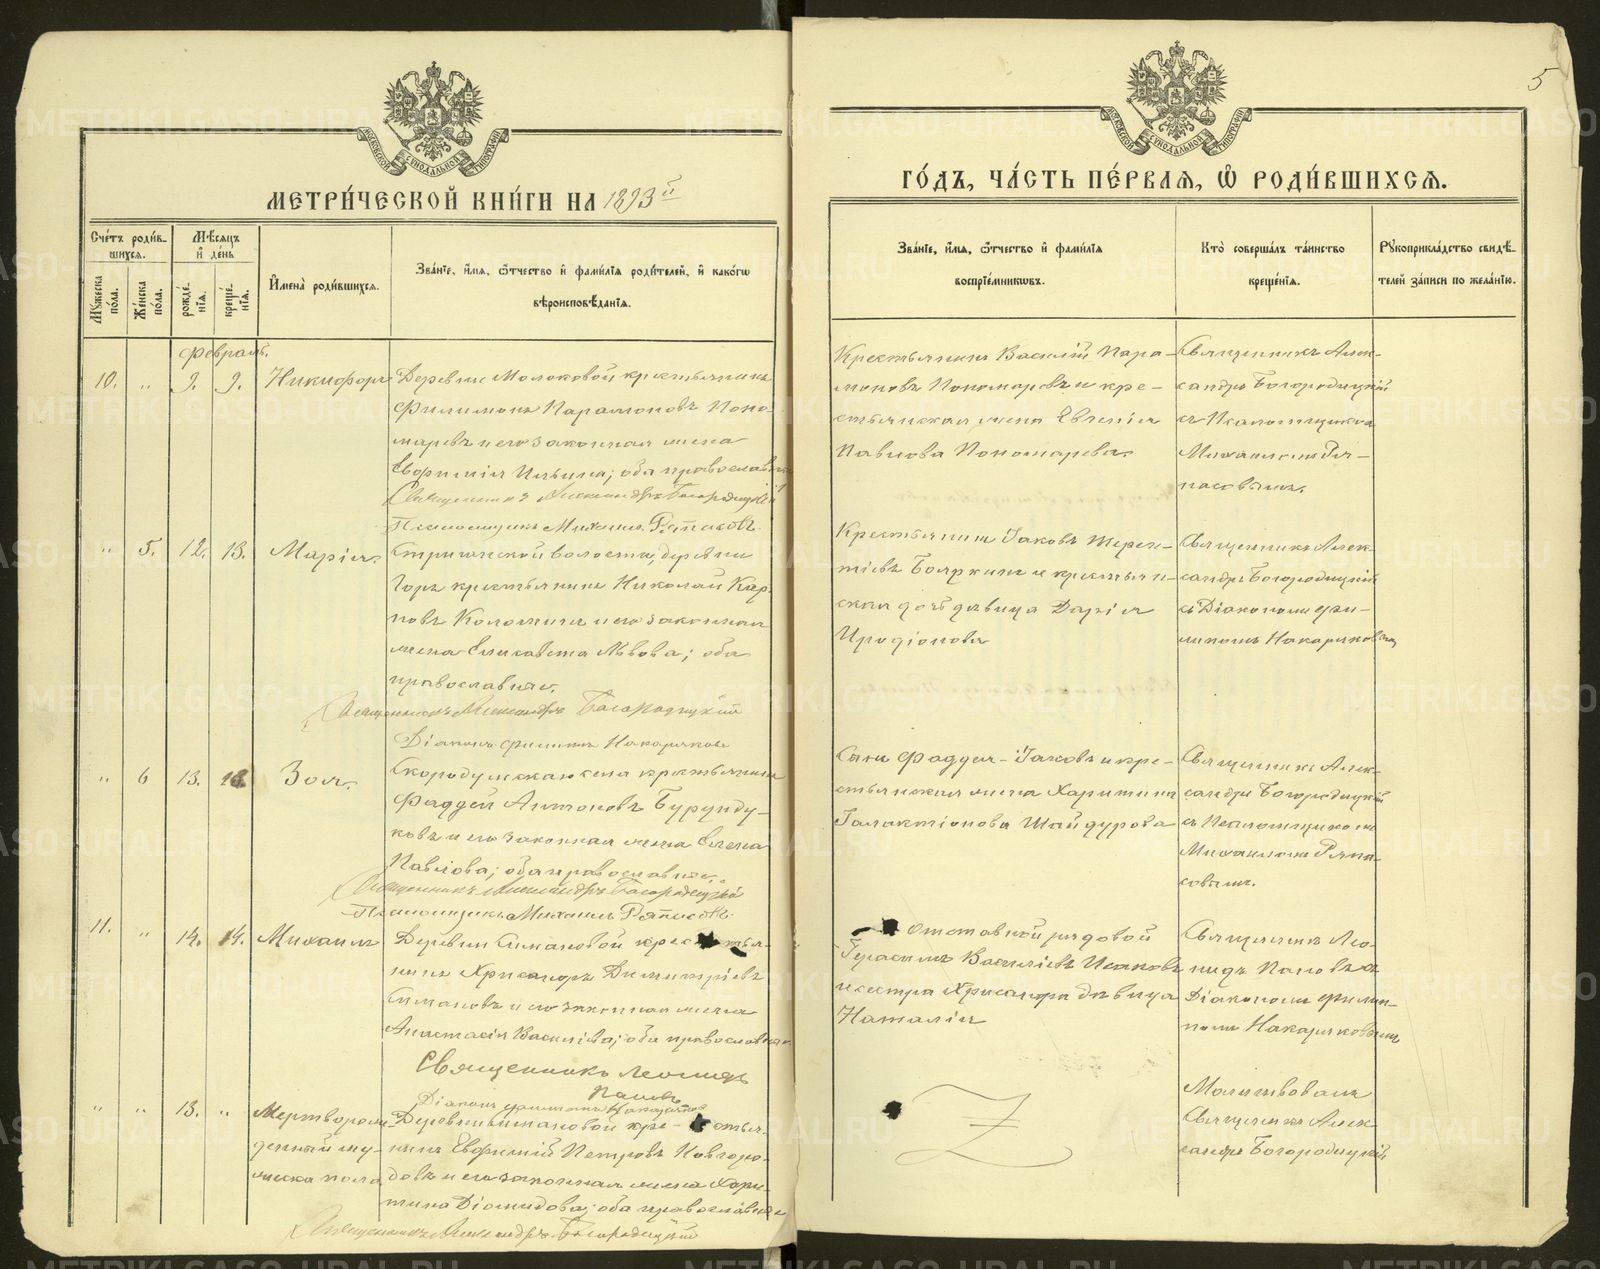 МЕТРИ́ЧЕСКОЙ КНИ́ГИ НА 1893й
Сче́тъ роди́в-
шихся.
Мѣ́сяцъ
и҆ де́нь
Мꙋ́жеска
по́ла.
Же́нска
по́ла.
рожде́-
нїѧ.
креще́-
нїѧ.
И҆мена̀ роди́вшихсѧ.
Зва́нїе, и҆́мѧ, ѻ҆́тчество и҆ фами́лїѧ роди́телей, и҆ како́гѡ
вѣроисповѣ́данїѧ.
Февраль.
10. " 9. 9. Никифоръ Деревни Молоковой крестьянинъ
Филимонъ Парамоновъ Поно-
маревъ и его законная жена
Евфимія Ильина; оба православные
Священникъ Александръ Богородицкій
Псаломщикъ Михаилъ Ряпасовъ.
" 5. 12. 13. Марія. Стриганской волости, деревни
Горъ крестьянинъ Николай Кар-
повъ Коломинъ и его законная
жена Елисавета Львова; оба
православные.
Священникъ Александръ Богородицкій
Діаконъ Филиппъ Накаряковъ
" 6 13. 13. Зоя. Скородумскаго села крестьянинъ
Фаддей Антоновъ Бурунду-
ковъ и его законная жена Елена
Павлова; оба православные.
Священникъ Александръ Богородицкій
Псаломщикъ Михаилъ Ряпасовъ.
11. " 14. 14. Михаилъ Деревни Симановой крестья-
нинъ Хрисанфъ Димитріевъ
Симановъ и его законная жена
Анастасія Василіева; оба православные
Священникъ Леонидъ
Поповъ
Діаконъ Филиппъ Накаряковъ
" " 13. " Мертворож- Деревни Симановой кре-стья-
денный му- нинъ Евфимій Петровъ Новгоро-
жеска пола довъ и его законная жена Хари-
тина Діомидова; оба православные
Священникъ Александръ Богородицкій
5
ГО́ДЪ, ЧА́СТЬ ПЕ́РВАЯ, Ѽ РОДИ́ВШИХСѦ.
Зва́нїе, и҆́мѧ, ѻ҆́тчество и҆ фами́лїѧ
воспрїе́мникѡвъ.
Кто̀ соверша́лъ та́инство
креще́нїѧ.
Рꙋкоприкла́дство свидѣ́-
телей за́писи по жела́нїю.
Крестьянинъ Василій Пара-
моновъ Пономаревъ и кре-
стьянская жена Евгенія
Павлова Пономарева.
Священникъ Алек-
сандръ Богородицкій
съ Псаломщикомъ
Михаиломъ Ря-
пасовымъ.
Крестьянинъ Іаковъ Терен-
тіевъ Бояркинъ и крестьян-
ская дочь дѣвица Дарія
Иродіонова
Священникъ Алек-
сандръ Богородицкій
съ Діакономъ Фи-
липпомъ Накаряковымъ
Сынъ Фаддея - Іаковъ и кре-
стьянская жена Харитина
Галактіонова Шайдурова
Священникъ Алек-
сандръ Богородицкій
съ Псаломщикомъ
Михаиломъ Ряпа-
совымъ.
Отставной рядовой
Герасимъ Василіевъ Исаковъ
и сестра Хрисанфа дѣвица
Наталія
Священникъ Лео-
нидъ Поповъ съ
Діакономъ Филип-
помъ Накаряковымъ
Молитвовалъ
Священникъ Алек-
сандръ Богородицкій